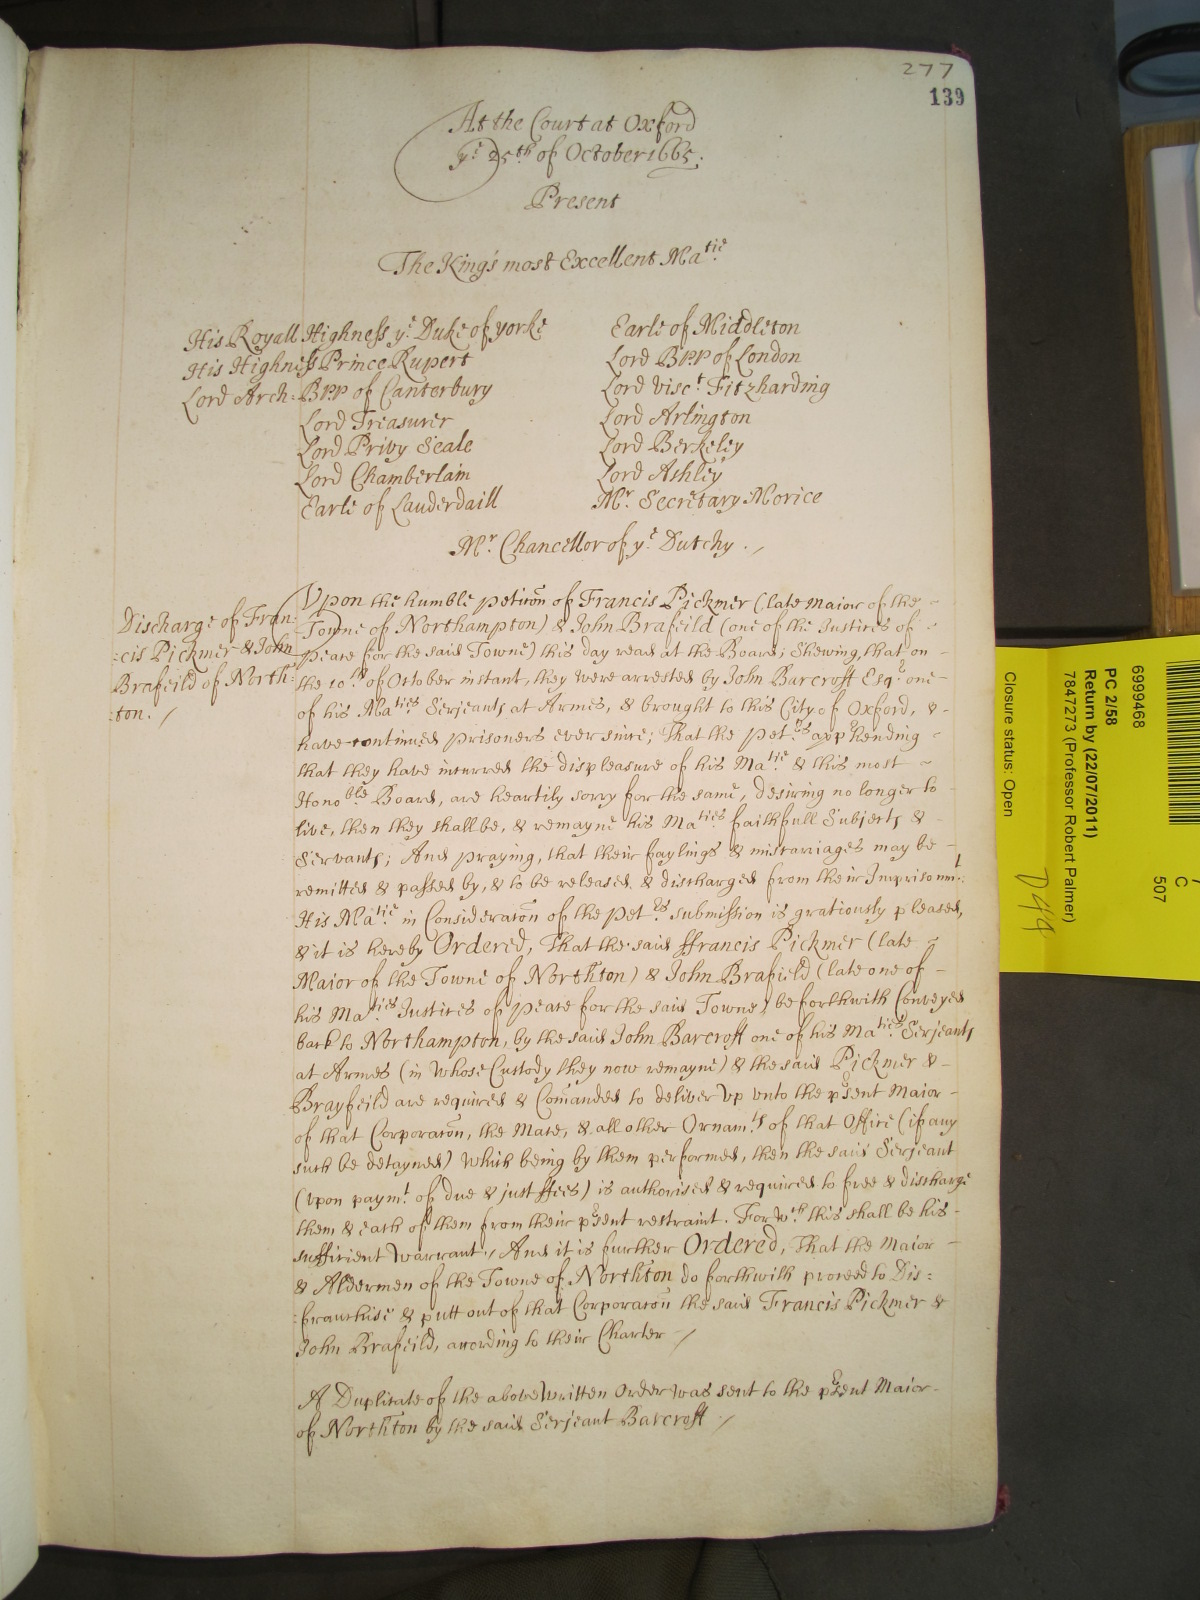 277
139
At the Court at Oxford
ye 25th of October 1665.
Present
The King's most Excellent Matie
His Royall Highness ye Duke of yorke
His Highness Prince Rupert
Lord Arch: Bpp of Canterbury
Lord Treasurer
Lord Privy Seale
Lord Chamberlain
Earle of Lauderdaill
Earle of Middleton
Lord Bpp of London
Lord Visct Fitzharding
Lord Arlington
Lord Berkeley
Lord Ashley
Mr Secretary Morice
Mr Chancellor of ye Dutchy.
Discharge of Fran
:cis Pickmer & John
Brafeild of North:
:ton.
Vpon the humble petition of Francis Pickmer (late Maior of the
Towne of Northampton) & John Brafeild (one of the Justices of
peace for the said Towne) this day read at the Board; Shewing, that on
the 10th of October instant, they were arrested by John Barcroft Esqr one
of his Maties Serjeants at Armes, & brought to this City of Oxford, &
have continued prisoners ever since; That the petrs apprhending
that they have incurred the displeasure of his Matie & this most
Honoble Board, are heartily sorry for the same, desiring no longer to
live, then they shall be, & remayne his Maties faithfull Subjects &
Servants; And praying, that their faylings & miscariages may be
remitted & passed by, & to be released & discharged from their Imprisonmt:
His Matie in Consideraton of the petrs submission is gratiously pleased,
& it is hereby Ordered, That the said ffrancis Pickmer (late
Maior of the Towne of Northton) & John Brafield (late one of
his Maties Justices of peace for the said Towne) be forthwith Conveyed
back to Northampton, by the said John Barcroft one of his Maties Serjeants
at Armes (in whose Custody they now remayne) & the said Pickmer &
Brayfeild are required & Comanded to deliver vp vnto the prsent Maior
of that Corporaton, the Mace, & all other Ornamts of that Office (if any
such be detayned) Which being by them performed, then the said Serjeant
(vpon paymt of due & just ffees) is authorised & required to free & discharge
them & each of them from their prsent restraint. For wch this shall be his
sufficient Warrant., And it is further Ordered, That the Maior
& Aldermen of the Towne of Northton do forthwith proceed to Dis:
:franchise & putt out of that Corporaton the said Francis Pickmer &
John Brafeild, according to their Charter
A Duplicate of the above written Order was sent to the prsent Maior
of Northton by the said Serjeant Barcroft.
6999468
PC 2/58
Return by (22/07/2011)
7847273 (Professor Robert Palmer)
Closure status: Open
C
507
D44